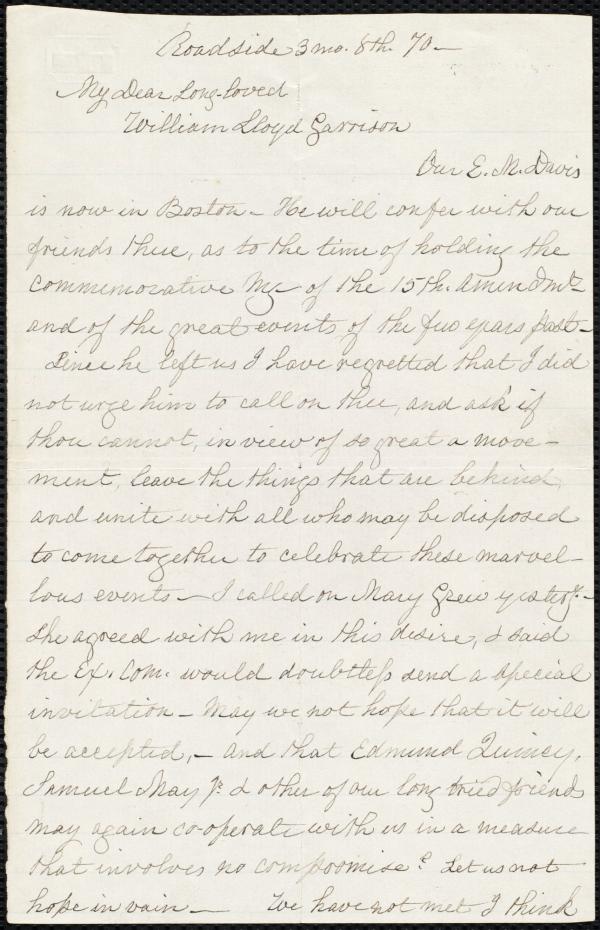 Roadside 3 mo. 8th. 70 —
My Dear Long-loved
William Lloyd Garrison
Our E. M. Davis
is now in Boston — He will confer with our
friends there, as to the time of holding the
commemorative Mg. of the 15th. Amendmt. —
and of the great events of the few years past —
Since he left us I have regretted that I did
not urge him to call on thee, and ask if
thou cannot, in view of so great a move-
ment, leave the things that are behind,
and unite with all who may be disposed
to come together to celebrate these marvel-
lous events — I called on Mary Grew yestery. —
She agreed with me in this desire, & said
the Ex. Com. would doubtless send a special
invitation — May we not hope that it will
be accepted, — and that Edmund Quincy,
Samuel May Jr. & other of our long tried friends
may again co-operate with us in a measure
that involves no compromise? Let us not
hope in vain — We have not met I think